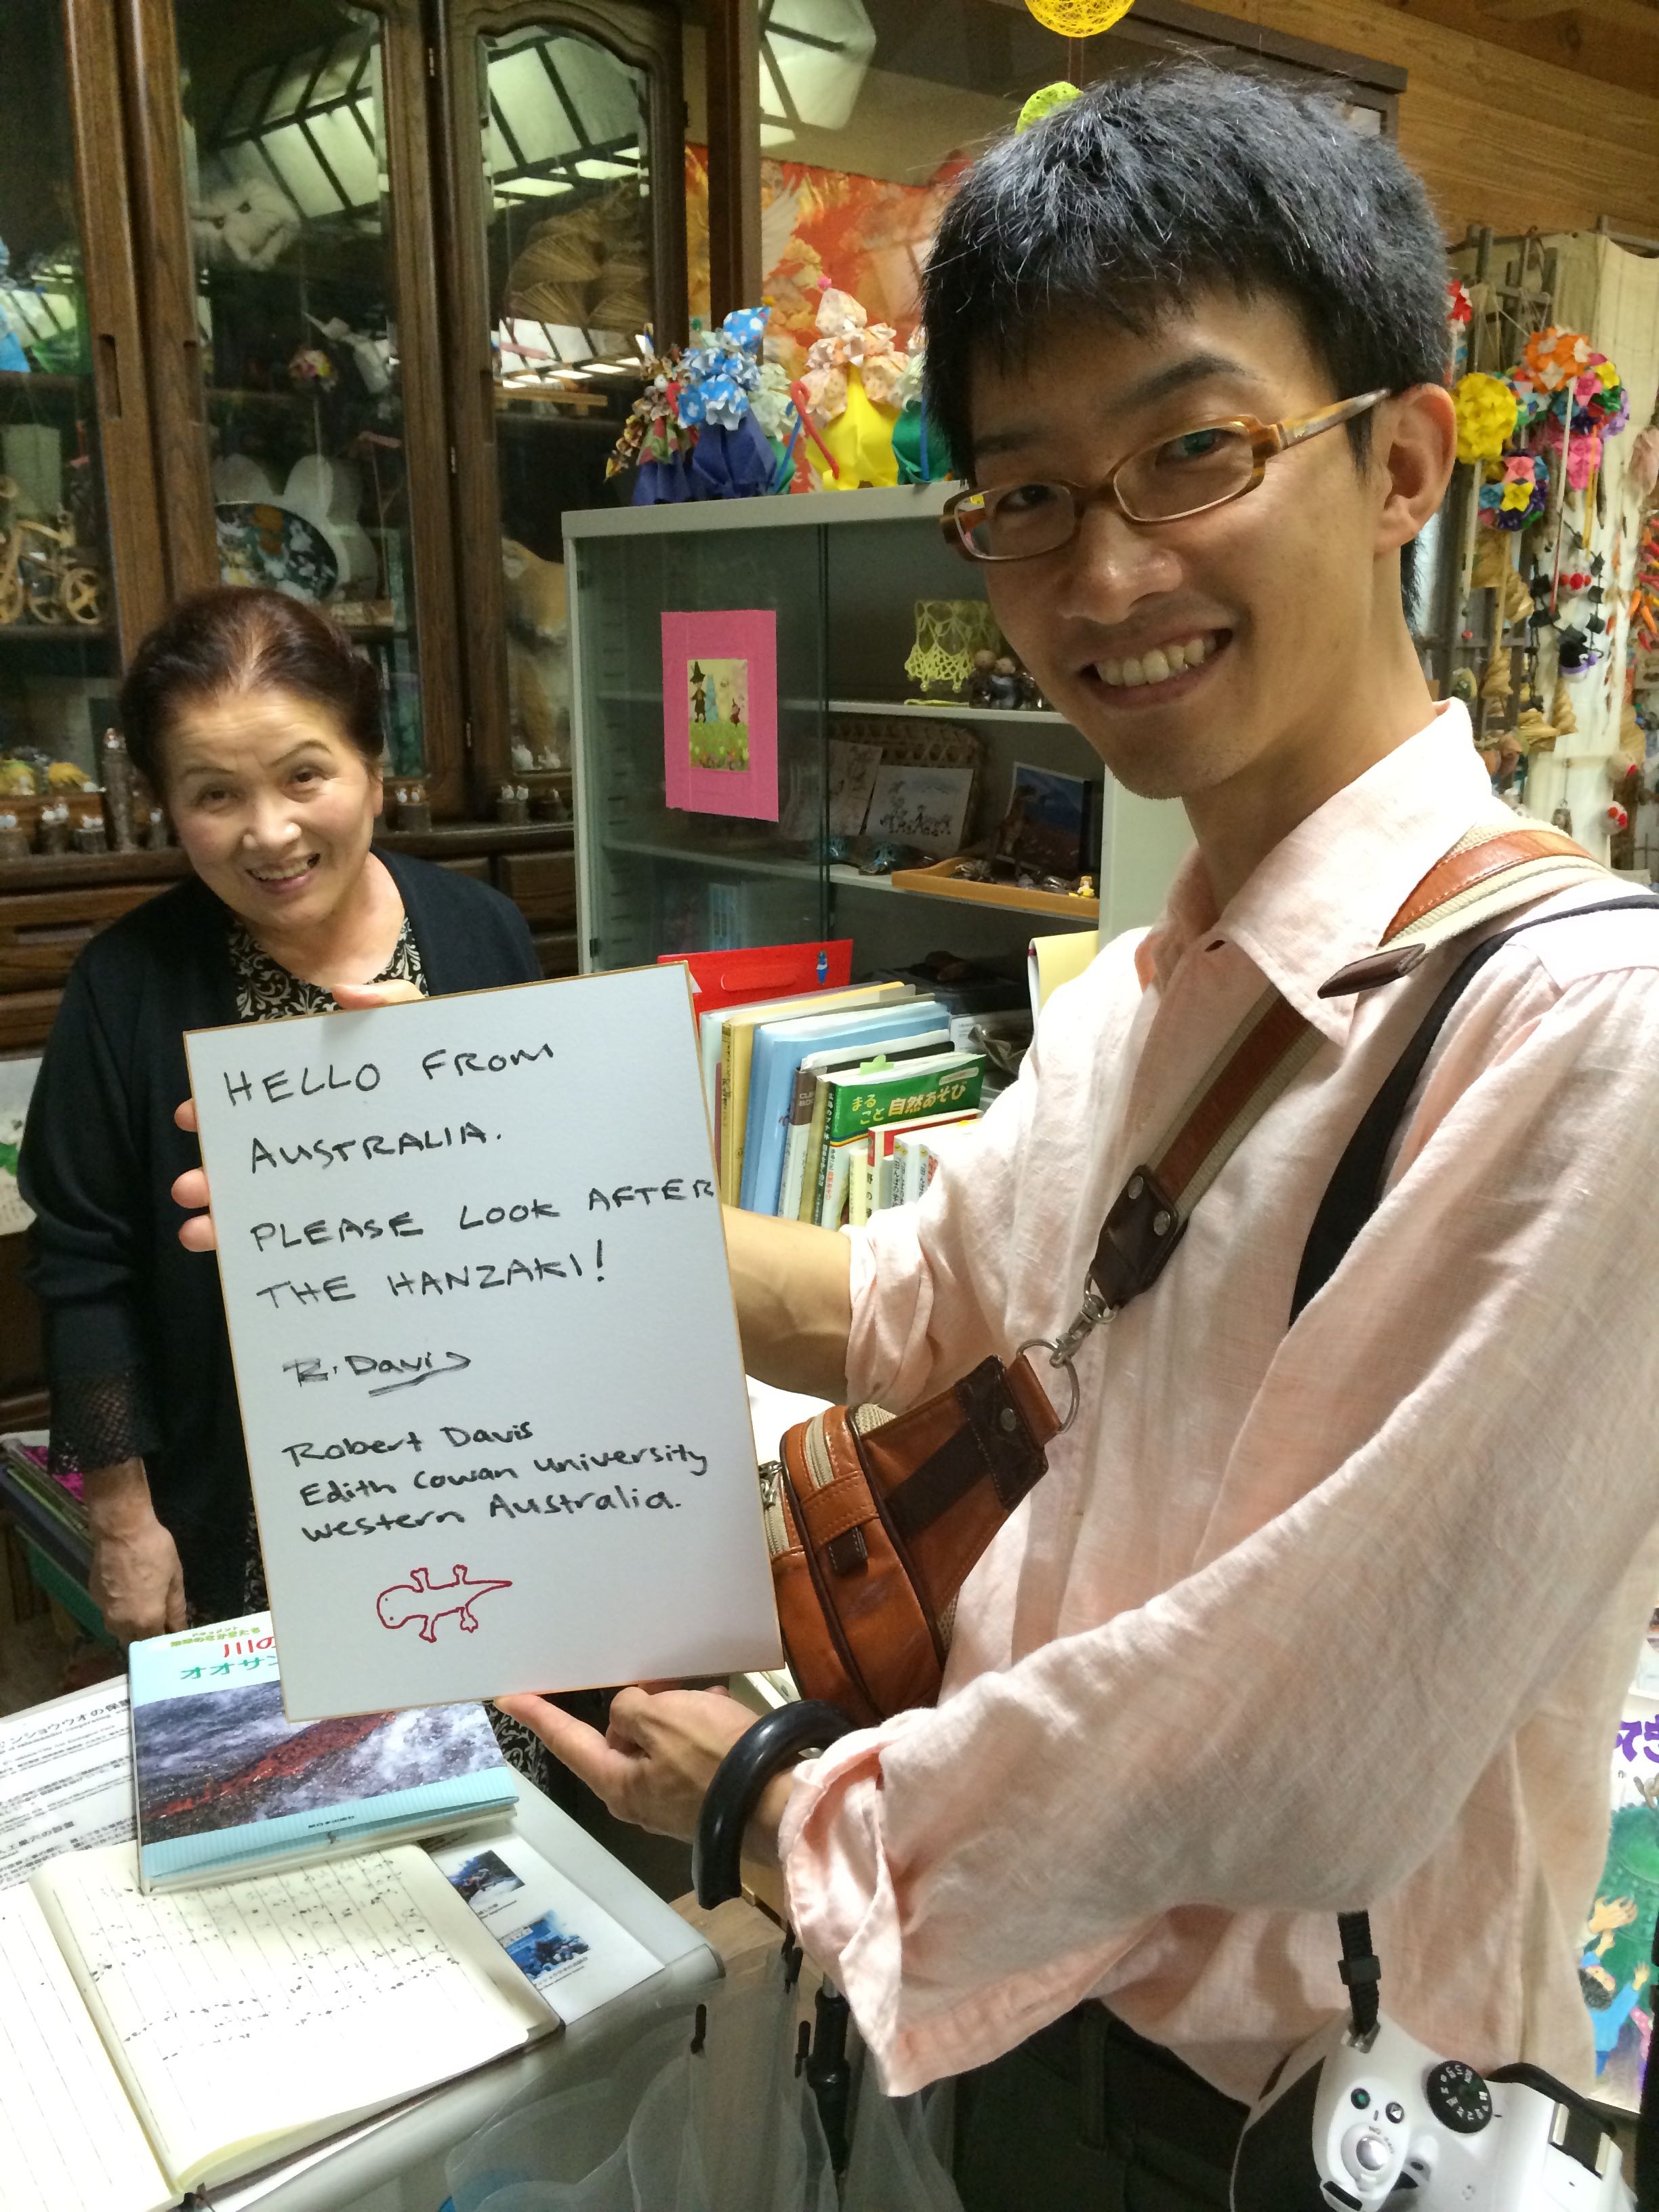 HELLO FROM
AUSTRALIA.
PLEASE LOOK AFTER
THE HANZAKI!
R. Davis
Robert Davis
Edith Cowan University
Western Australia.
まるごと自然あそび
川の
オオサン
ンショウウオの保護
人工巣穴の設置